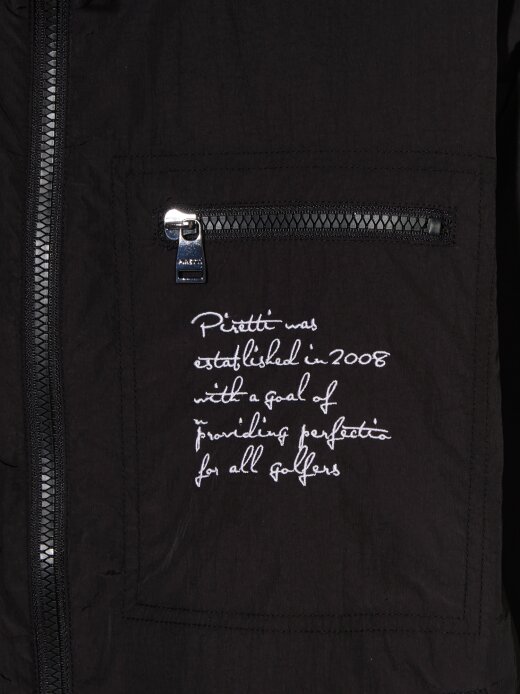 Piretti was
established in 2008
with a goal of
providing perfectio
for all golfers